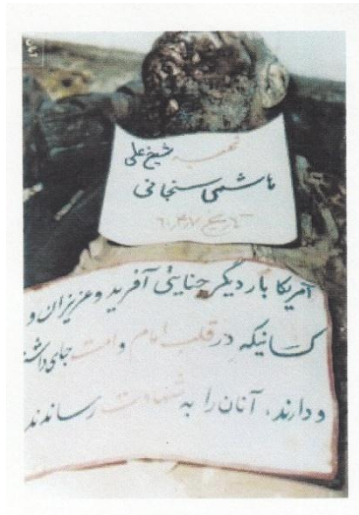 شهید شیخ علی
هاشمی سنجانی
تاریخ ۶۰٫۴٫۷
آمریکا بار دیگر جنایتی آفرید و عزیزان و
کسانیکه در قلب امام و امت جای داشتند
و دارند، آنان را به شهادت رساندند